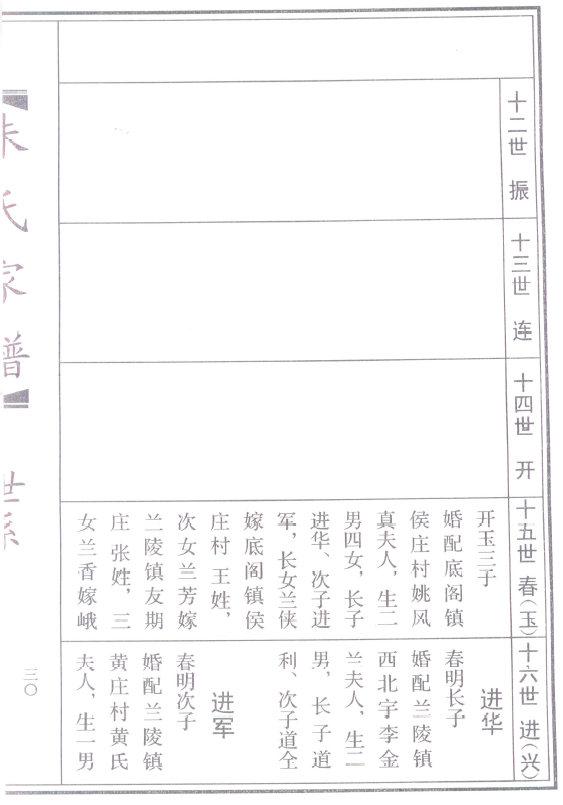 十二世 振
十三世 连
十四世 开
十五世 春(玉)
开玉三子
婚配底阁镇
侯庄村姚风
真夫人，生二
男四女，长子
进华、次子进
军，长女兰侠
嫁底阁镇侯
庄村 王姓，
次女兰芳嫁
兰陵镇友期
庄 张姓，三
女兰香嫁峨
十六世 进(兴)
进华
春明长子
婚配兰陵镇
西北宇李金
兰夫人，生二
男，长子道
利、次子道全
进军
春明次子
婚配兰陵镇
黄庄村黄氏
夫人，生一男
朱氏家谱
世系
三〇